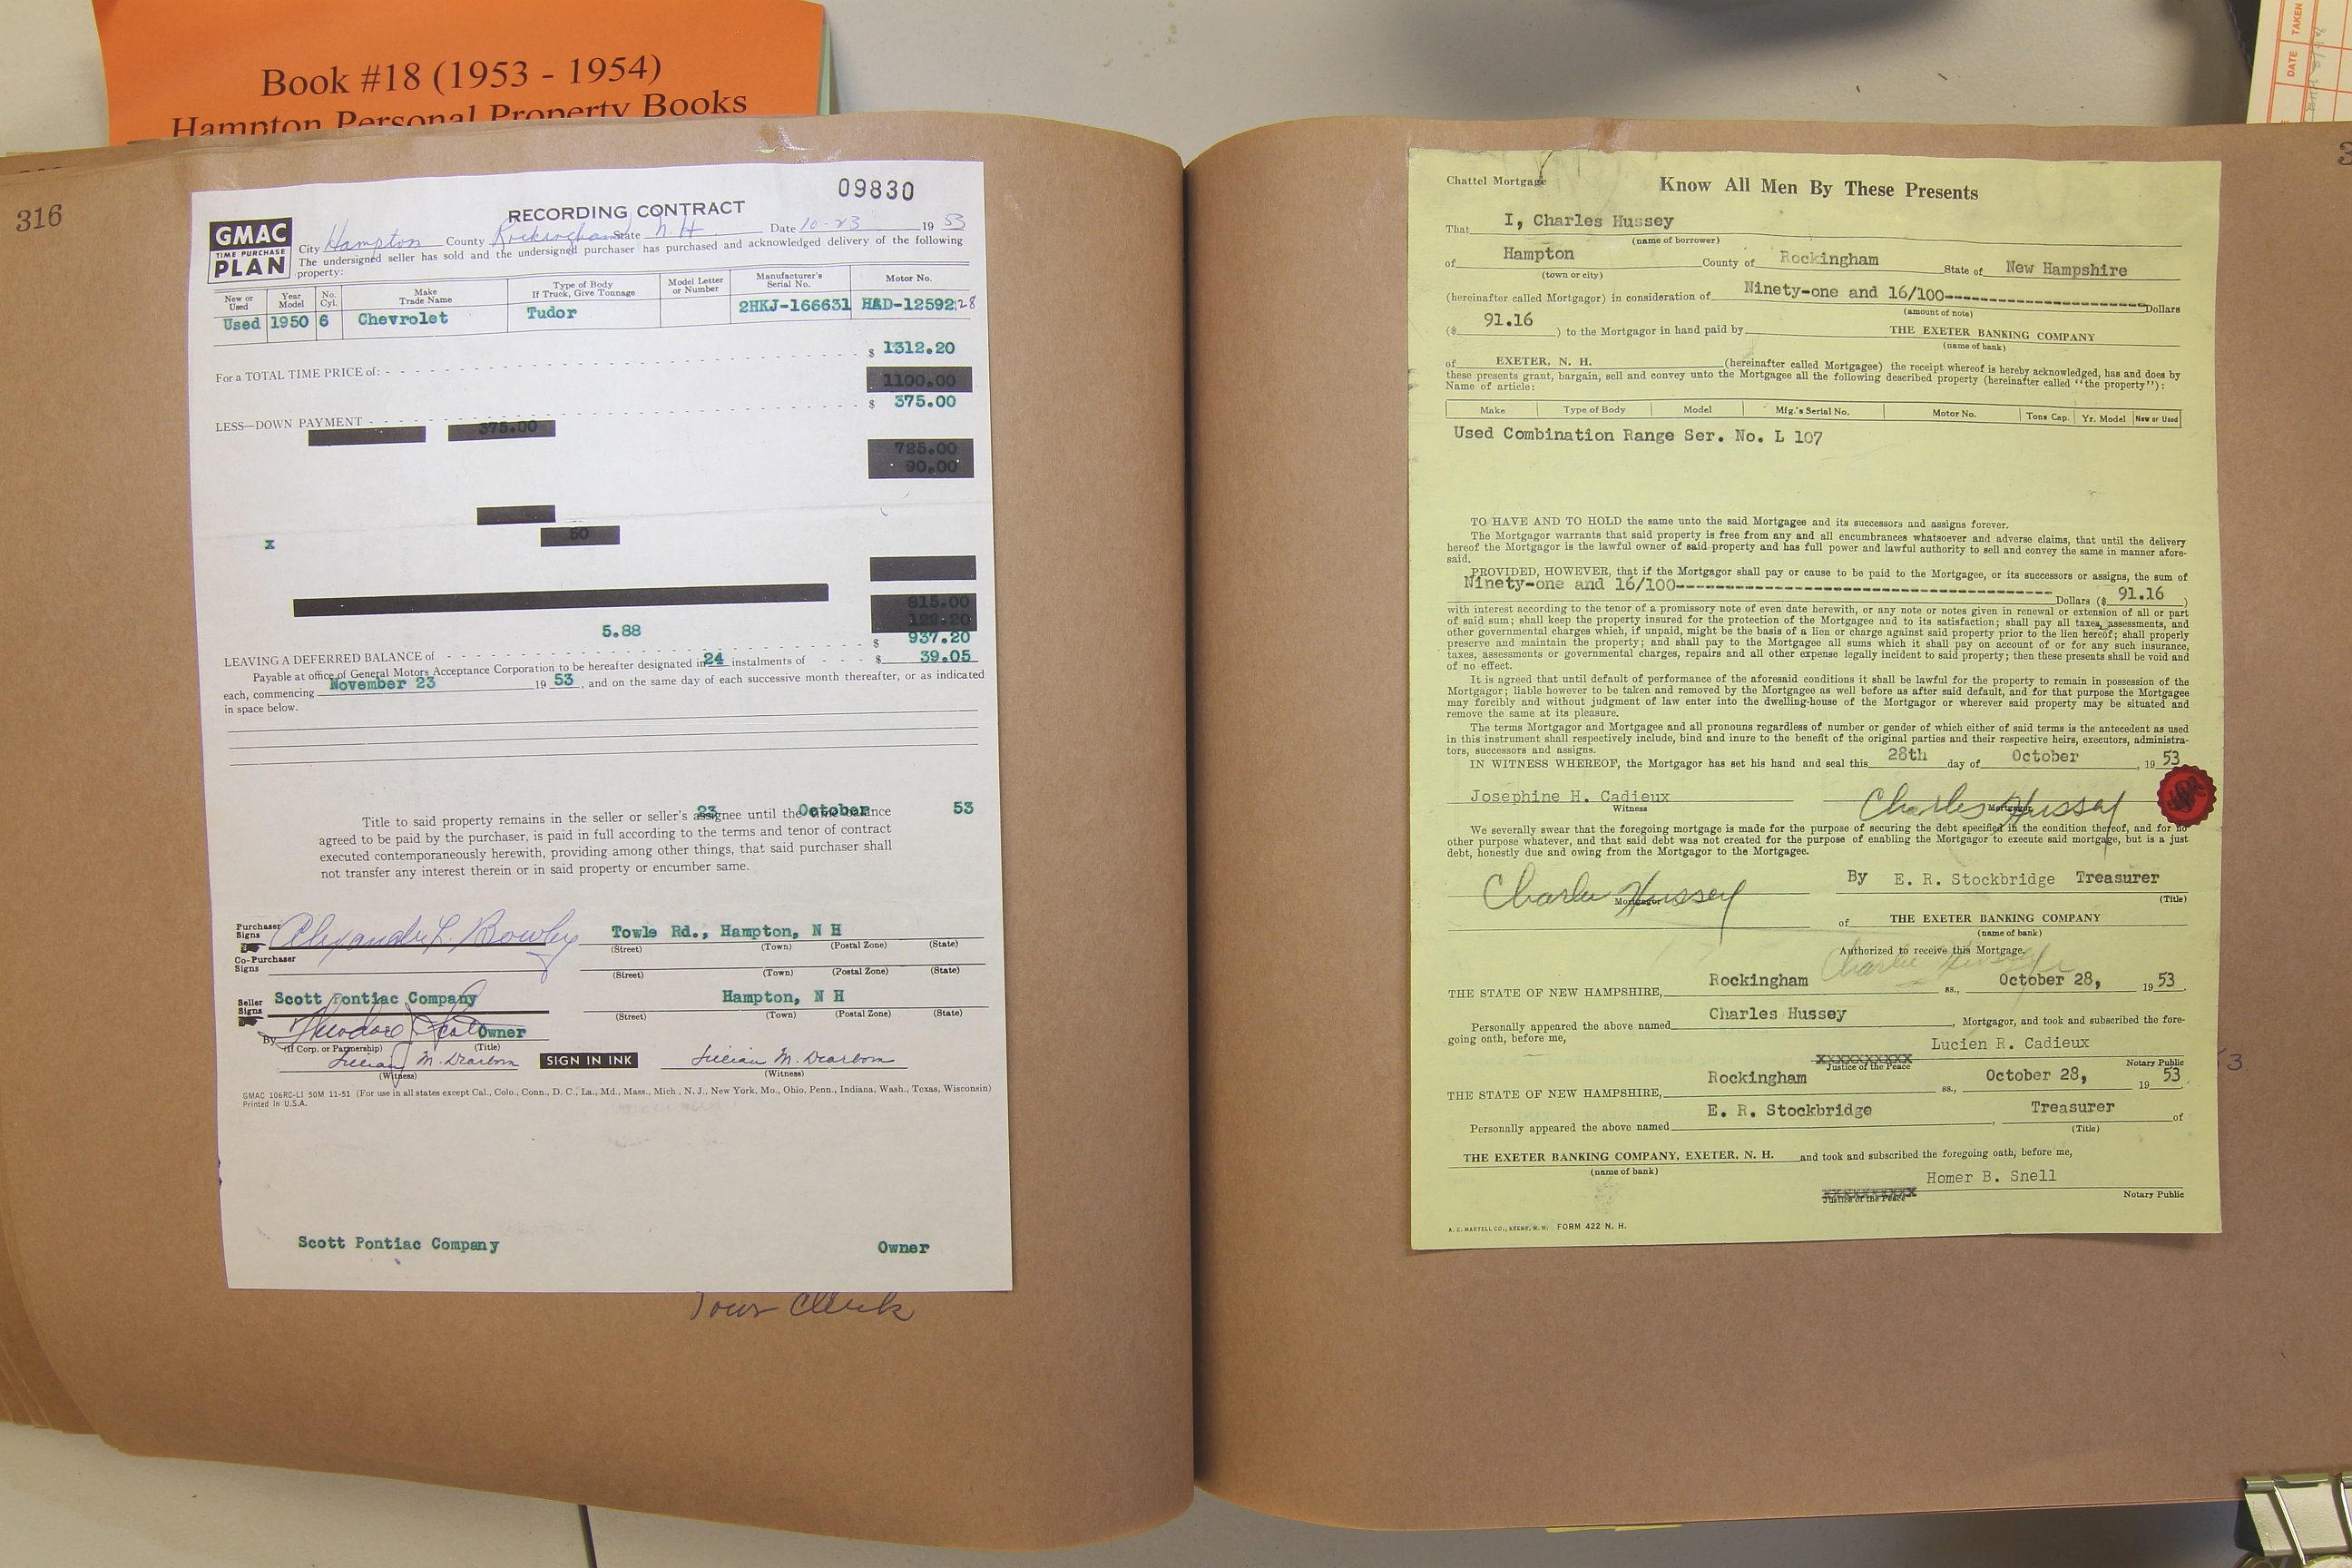 Book #18 (1953 - 1954)
Hampton Personal Property Books
DATE TAKEN
316
09830
RECORDING CONTRACT
GMAC
TIME PURCHASE
PLAN
City Hampton County Rockingham State N.H. Date 10-23 19 53
The undersigned seller has sold and the undersigned purchaser has purchased and acknowledged delivery of the following
property:
New or Used Year Model No. Cyl. Make Trade Name Type of Body If Truck, Give Tonnage Model Letter or Number Manufacturer's Serial No. Motor No.
Used 1950 6 Chevrolet Tudor 2HKJ-166631 HAD-1259228
For a TOTAL TIME PRICE of: $ 1312.20
1100.00
LESS—DOWN PAYMENT $ 375.00
375.00
725.00
90.00
x
50
815.00
122.20
5.88
LEAVING A DEFERRED BALANCE of $ 937.20
Payable at office of General Motors Acceptance Corporation to be hereafter designated in 24 instalments of $ 39.05
each, commencing November 23 19 53, and on the same day of each successive month thereafter, or as indicated
in space below.
23 October 53
Title to said property remains in the seller or seller's assignee until the time balance
agreed to be paid by the purchaser, is paid in full according to the terms and tenor of contract
executed contemporaneously herewith, providing among other things, that said purchaser shall
not transfer any interest therein or in said property or encumber same.
Purchaser Signs Alexander L. Bowley Towle Rd., Hampton, N H
(Street) (Town) (Postal Zone) (State)
Co-Purchaser Signs
(Street) (Town) (Postal Zone) (State)
Seller Signs Scott Pontiac Company Hampton, N H
(Street) (Town) (Postal Zone) (State)
By Theodore J Scott Owner
(If Corp. or Partnership) (Title)
Lillian M. Dearborn SIGN IN INK Lillian M. Dearborn
(Witness) (Witness)
GMAC 106RC-LI 50M 11-51 (For use in all states except Cal., Colo., Conn., D. C., La., Md., Mass., Mich., N. J., New York, Mo., Ohio, Penn., Indiana, Wash., Texas, Wisconsin)
Printed in U.S.A.
Scott Pontiac Company Owner
Town Clerk
Chattel Mortgage
Know All Men By These Presents
That I, Charles Hussey
(name of borrower)
of Hampton County of Rockingham State of New Hampshire
(town or city)
(hereinafter called Mortgagor) in consideration of Ninety-one and 16/100 Dollars
(amount of note)
($ 91.16 ) to the Mortgagor in hand paid by THE EXETER BANKING COMPANY
(name of bank)
of EXETER, N. H. (hereinafter called Mortgagee) the receipt whereof is hereby acknowledged, has and does by
these presents grant, bargain, sell and convey unto the Mortgagee all the following described property (hereinafter called "the property"):
Name of article:
Make Type of Body Model Mfg.'s Serial No. Motor No. Tons Cap. Yr. Model New or Used
Used Combination Range Ser. No. L 107
TO HAVE AND TO HOLD the same unto the said Mortgagee and its successors and assigns forever.
The Mortgagor warrants that said property is free from any and all encumbrances whatsoever and adverse claims, that until the delivery
hereof the Mortgagor is the lawful owner of said property and has full power and lawful authority to sell and convey the same in manner afore-
said.
PROVIDED, HOWEVER, that if the Mortgagor shall pay or cause to be paid to the Mortgagee, or its successors or assigns, the sum of
Ninety-one and 16/100 Dollars ($ 91.16 )
with interest according to the tenor of a promissory note of even date herewith, or any note or notes given in renewal or extension of all or part
of said sum; shall keep the property insured for the protection of the Mortgagee and to its satisfaction; shall pay all taxes, assessments, and
other governmental charges which, if unpaid, might be the basis of a lien or charge against said property prior to the lien hereof; shall properly
preserve and maintain the property; and shall pay to the Mortgagee all sums which it shall pay on account of or for any such insurance,
taxes, assessments or governmental charges, repairs and all other expense legally incident to said property; then these presents shall be void and
of no effect.
It is agreed that until default of performance of the aforesaid conditions it shall be lawful for the property to remain in possession of the
Mortgagor; liable however to be taken and removed by the Mortgagee as well before as after said default, and for that purpose the Mortgagee
may forcibly and without judgment of law enter into the dwelling-house of the Mortgagor or wherever said property may be situated and
remove the same at its pleasure.
The terms Mortgagor and Mortgagee and all pronouns regardless of number or gender of which either of said terms is the antecedent as used
in this instrument shall respectively include, bind and inure to the benefit of the original parties and their respective heirs, executors, administra-
tors, successors and assigns.
IN WITNESS WHEREOF, the Mortgagor has set his hand and seal this 28th day of October, 19 53
Josephine H. Cadieux Charles Hussey
Witness Mortgagor
We severally swear that the foregoing mortgage is made for the purpose of securing the debt specified in the condition thereof, and for no
other purpose whatever, and that said debt was not created for the purpose of enabling the Mortgagor to execute said mortgage, but is a just
debt, honestly due and owing from the Mortgagor to the Mortgagee.
Charles Hussey By E. R. Stockbridge Treasurer
Mortgagor (Title)
of THE EXETER BANKING COMPANY
(name of bank)
Authorized to receive this Mortgage.
THE STATE OF NEW HAMPSHIRE, Rockingham ss., October 28, 19 53
Personally appeared the above named Charles Hussey, Mortgagor, and took and subscribed the fore-
going oath, before me,
Lucien R. Cadieux
Justice of the Peace Notary Public
THE STATE OF NEW HAMPSHIRE, Rockingham ss., October 28, 19 53
Personally appeared the above named E. R. Stockbridge, Treasurer of
(Title)
THE EXETER BANKING COMPANY, EXETER, N. H. and took and subscribed the foregoing oath, before me,
(name of bank)
Homer B. Snell
Justice of the Peace Notary Public
A. E. MARTELL CO., KEENE, N. H. FORM 422 N. H.